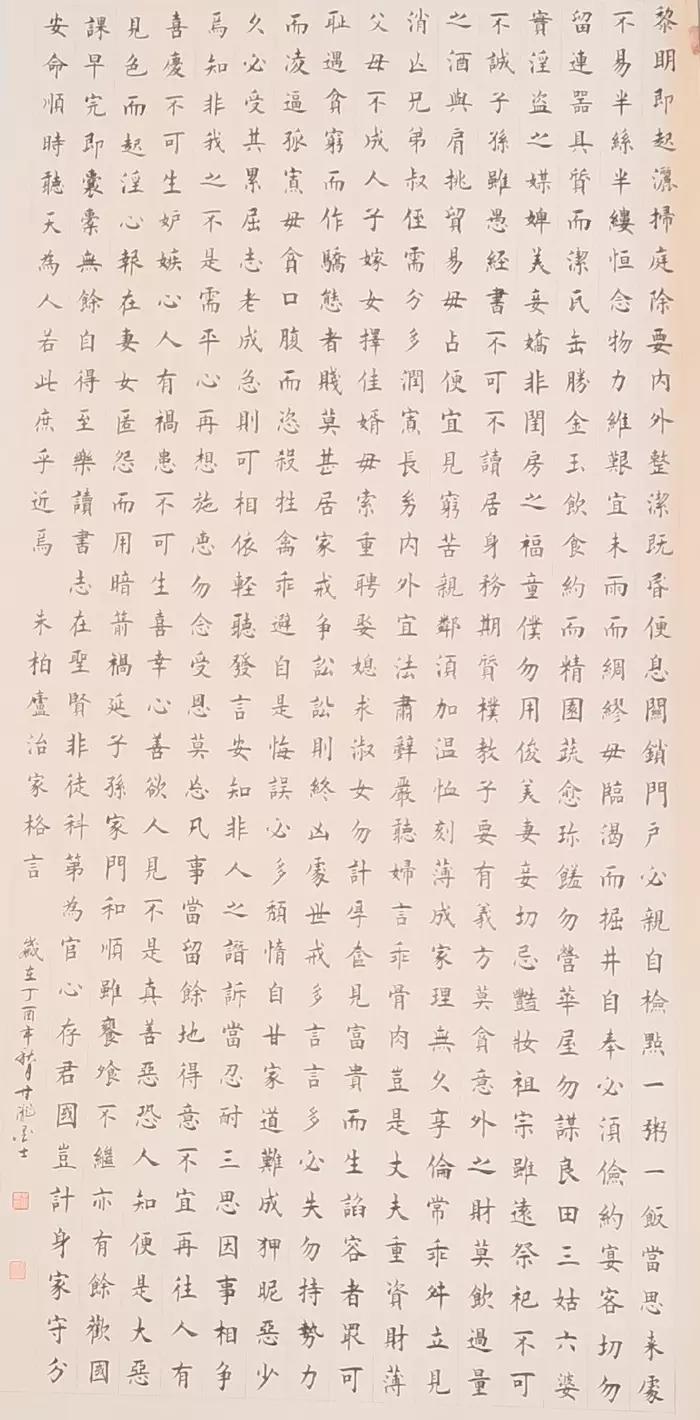 黎明即起灑掃庭除要內外整潔既昏便息關鎖門戶必親自檢點一粥一飯當思來處
不易半絲半縷恒念物力維艱宜未雨而綢繆毋臨渴而掘井自奉必須儉約宴客切勿
留連器具質而潔瓦缶勝金玉飲食約而精園蔬愈珍饈勿營華屋勿謀良田三姑六婆
實淫盜之媒婢美妾嬌非閨房之福童僕勿用俊美妻妾切忌艷妝祖宗雖遠祭祀不可
不誠子孫雖愚經書不可不讀居身務期質樸教子要有義方莫貪意外之財莫飲過量
之酒與肩挑貿易毋占便宜見窮苦親鄰須加温恤刻薄成家理無久享倫常乖舛立見
消亡兄弟叔侄需分多潤寡長幼內外宜法肅辭嚴聽婦言乖骨肉豈是丈夫重資財薄
父母不成人子嫁女擇佳婿毋索重聘娶媳求淑女勿計厚奩見富貴而生諂容者最可
耻遇貧窮而作驕態者賤莫甚居家戒爭訟訟則終凶處世戒多言言多必失勿持勢力
而凌逼孤寡毋貪口腹而恣殺牲禽乖避自是悔誤必多頹惰自甘家道難成狎昵惡少
久必受其累屈志老成急則可相依輕聽發言安知非人之譖訴當忍耐三思因事相爭
焉知非我之不是需平心再想施惠勿念受恩莫忘凡事當留餘地得意不宜再往人有
喜慶不可生妒嫉心人有禍患不可生喜幸心善欲人見不是真善惡恐人知便是大惡
見色而起淫心報在妻女匿怨而用暗箭禍延子孫家門和順雖饔飧不繼亦有餘歡國
課早完即囊橐無餘自得至樂讀書志在聖賢非徒科第為官心存君國豈計身家守分
安命順時聽天為人若此庶乎近焉 朱柏廬治家格言
歲在丁酉年秋月